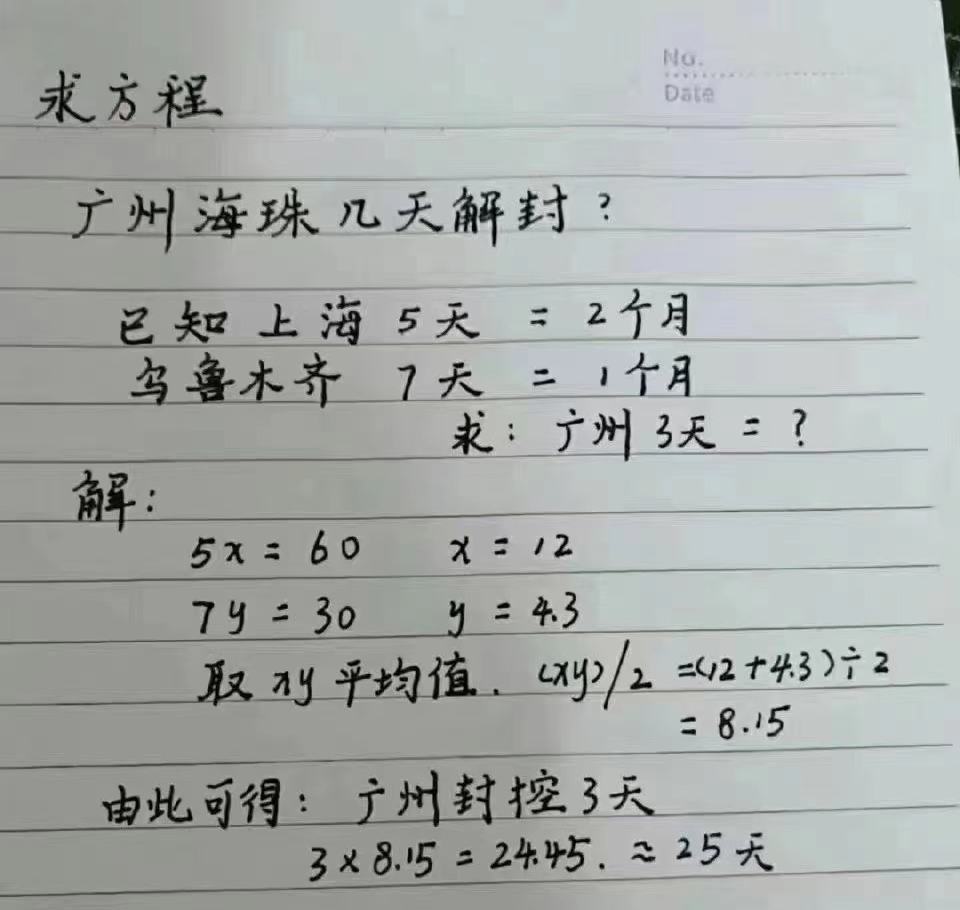 No.
Date
求方程
广州海珠几天解封?
已知上海5天 = 2个月
乌鲁木齐 7天 = 1个月
求: 广州3天 = ?
解:
5x = 60 x = 12
7y = 30 y = 4.3
取xy平均值. (xy)/2 =(12+4.3)÷2
= 8.15
由此可得: 广州封控3天
3×8.15 = 24.45. ≈ 25天